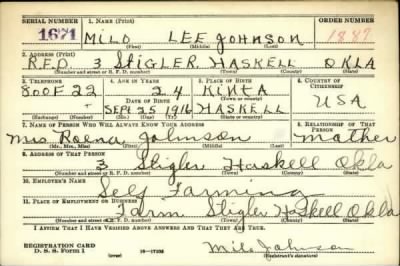 SERIAL NUMBER 1. NAME (Print) ORDER NUMBER
1671 MILO LEE JOHNSON 1887
(First) (Middle) (Last)
2. ADDRESS (Print)
R.F.D. 3 STIGLER HASKELL OKLA
(Number and street or R. F. D. number) (Town) (County) (State)
3. TELEPHONE 4. AGE IN YEARS 5. PLACE OF BIRTH 6. COUNTRY OF CITIZENSHIP
800F22 24 KINTA
DATE OF BIRTH (Town or county) USA
SEPT 25 1916 HASKELL
(Exchange) (Number) (Mo.) (Day) (Yr.) (State or country)
7. NAME OF PERSON WHO WILL ALWAYS KNOW YOUR ADDRESS 8. RELATIONSHIP OF THAT PERSON
Mrs Johnson Mother
(Mr., Mrs., Miss) (First) (Middle) (Last)
9. ADDRESS OF THAT PERSON
3 Stigler Haskell Okla
(Number and street or R. F. D. number) (Town) (County) (State)
10. EMPLOYER'S NAME
Self Farming
11. PLACE OF EMPLOYMENT OR BUSINESS
Farm Stigler Haskell Okla
(Number and street or R. F. D. number) (Town) (County) (State)
I AFFIRM THAT I HAVE VERIFIED ABOVE ANSWERS AND THAT THEY ARE TRUE.
REGISTRATION CARD
D. S. S. Form 1 Milo Johnson
(Registrant's signature)